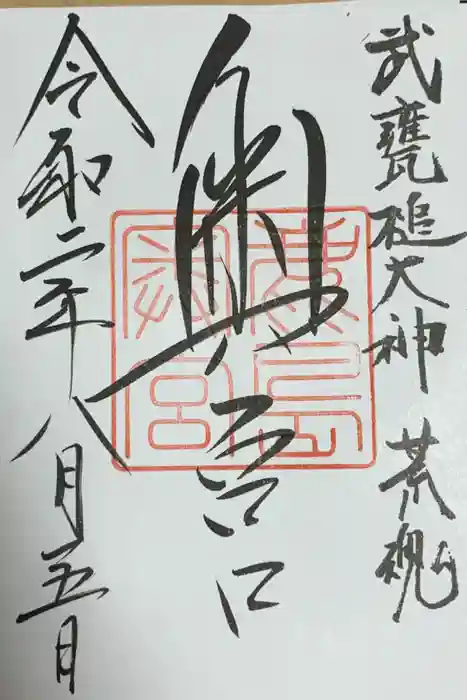 武甕槌大神 荒魂
奥宮
鹿島神宮
令和二年八月五日